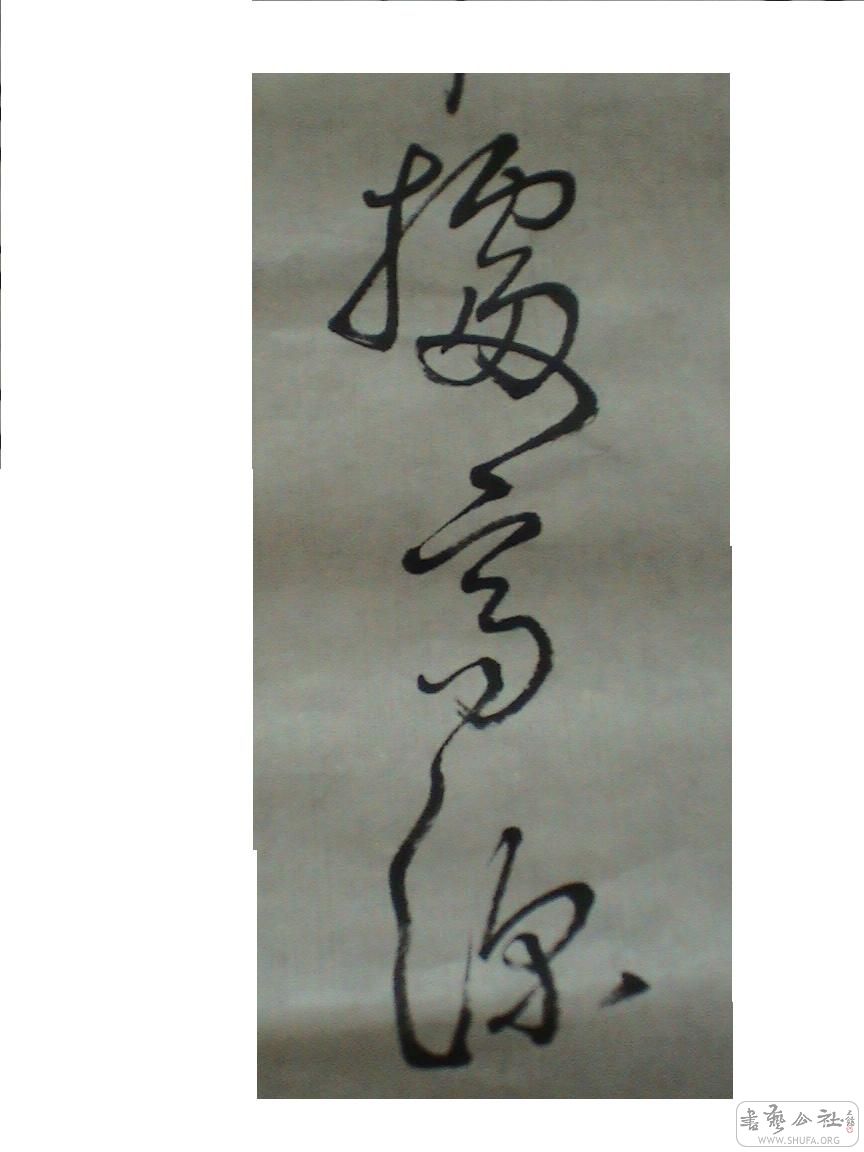 據高深
書藝公社
WWW.SHUFA.ORG